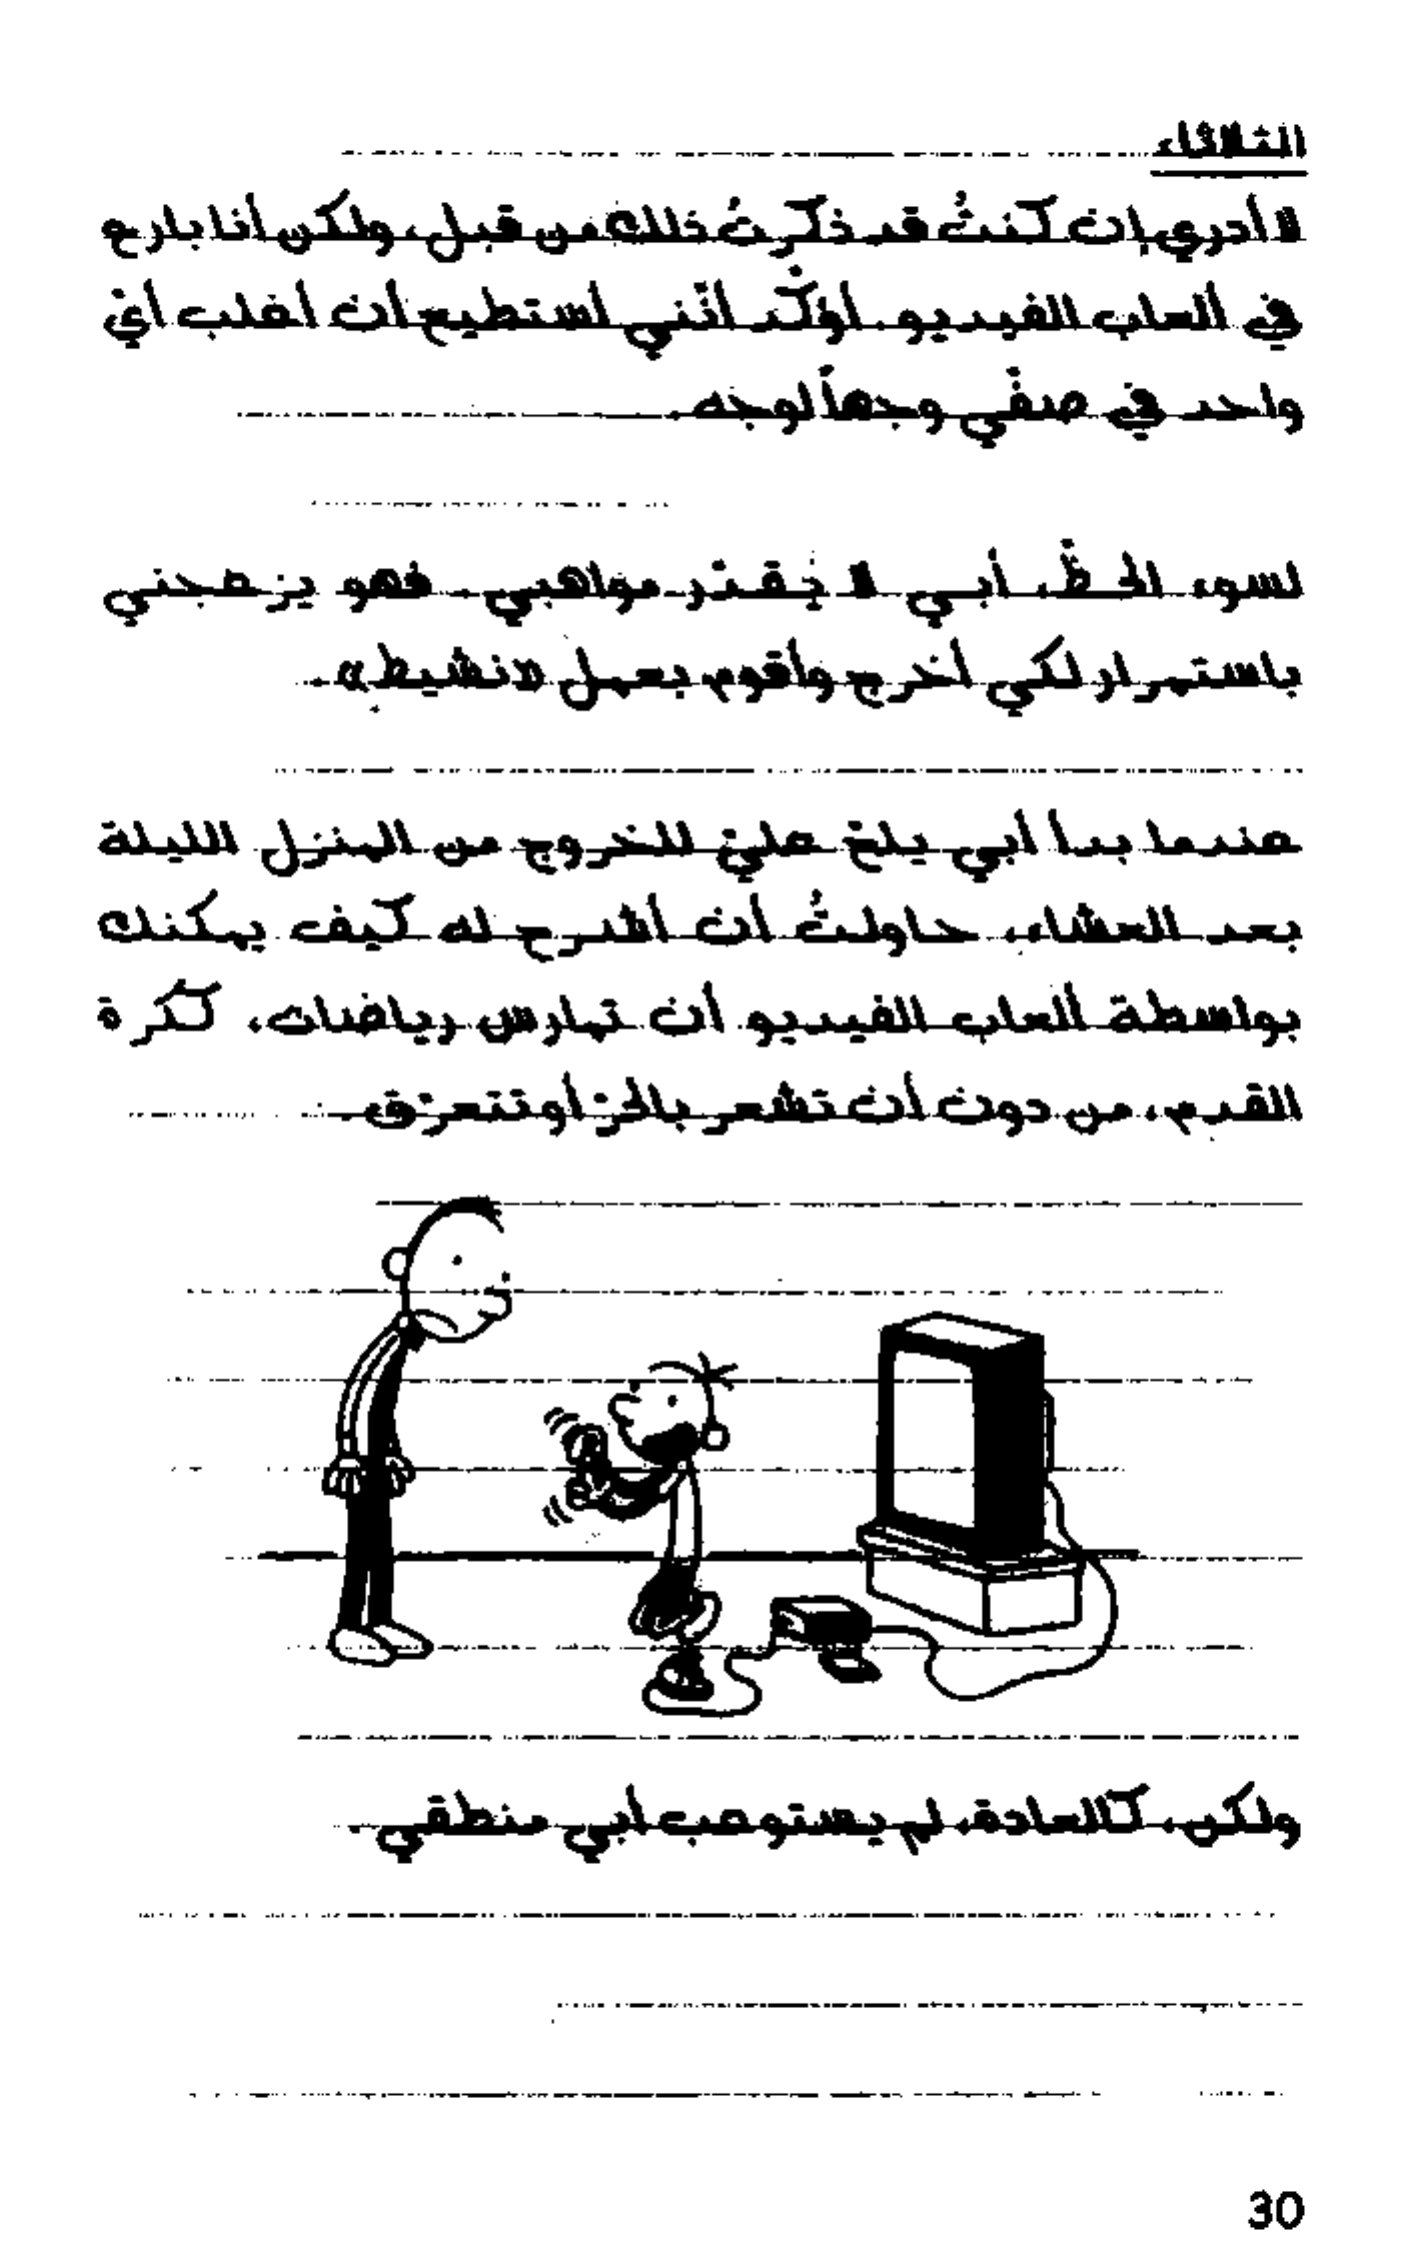 الثلاثاء
لا أدري إن كنتُ قد ذكرتُ ذلك من قبل، ولكن أنا بارع
في ألعاب الفيديو. أؤكّد أنّني أستطيع أن أغلب أيّ
واحد في صفّي وجهاً لوجه.
لسوء الحظّ، أبي لا يُقدّر مواهبي. فهو يزعجني
باستمرار لكي أخرج وأقوم بعمل «نشيط».
عندما بدأ أبي يلحّ عليّ للخروج من المنزل الليلة
بعد العشاء، حاولتُ أن أشرح له كيف يمكنك
بواسطة ألعاب الفيديو أن تمارس رياضات، ككُرة
القدم، من دون أن تشعر بالحرّ أو تتعرّق.
ولكن، كالعادة، لم يستوعب أبي منطقي.
30